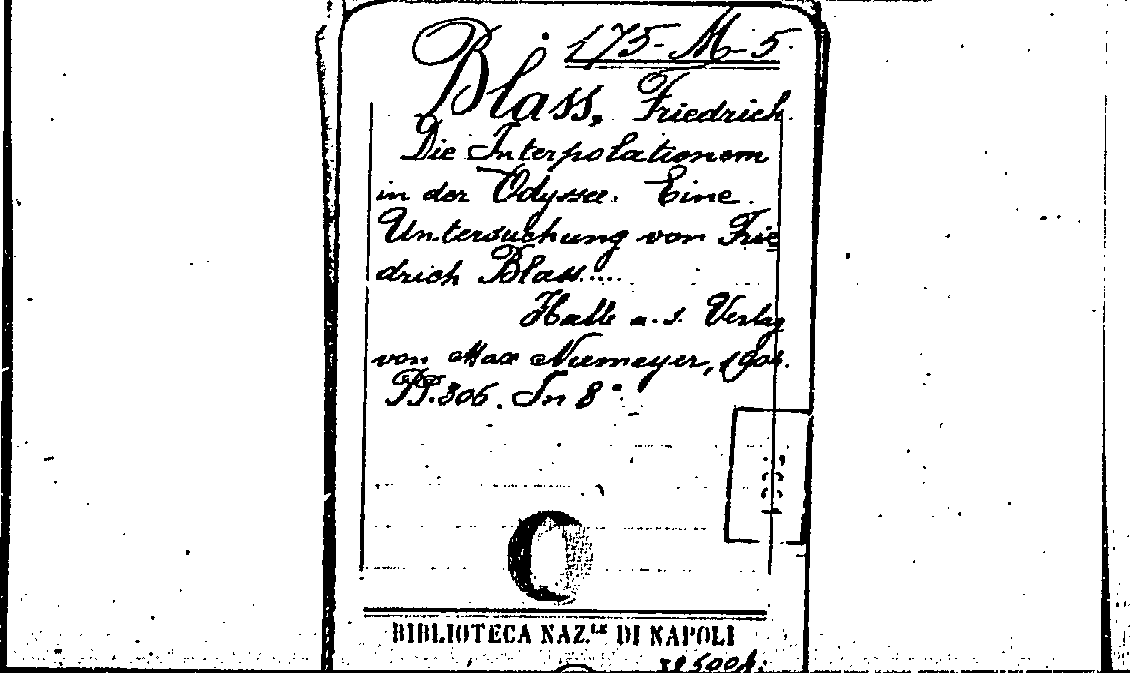 175-M-5.
Blass, Friedrich.
Die Interpolationem
in der Odyssee. Eine
Untersuchung von Frie
drich Blass.....
Halle a. s. Verlag
von Max Niemeyer, 1904.
PP. 306. In 8°.
BIBLIOTECA NAZ.LE DI NAPOLI